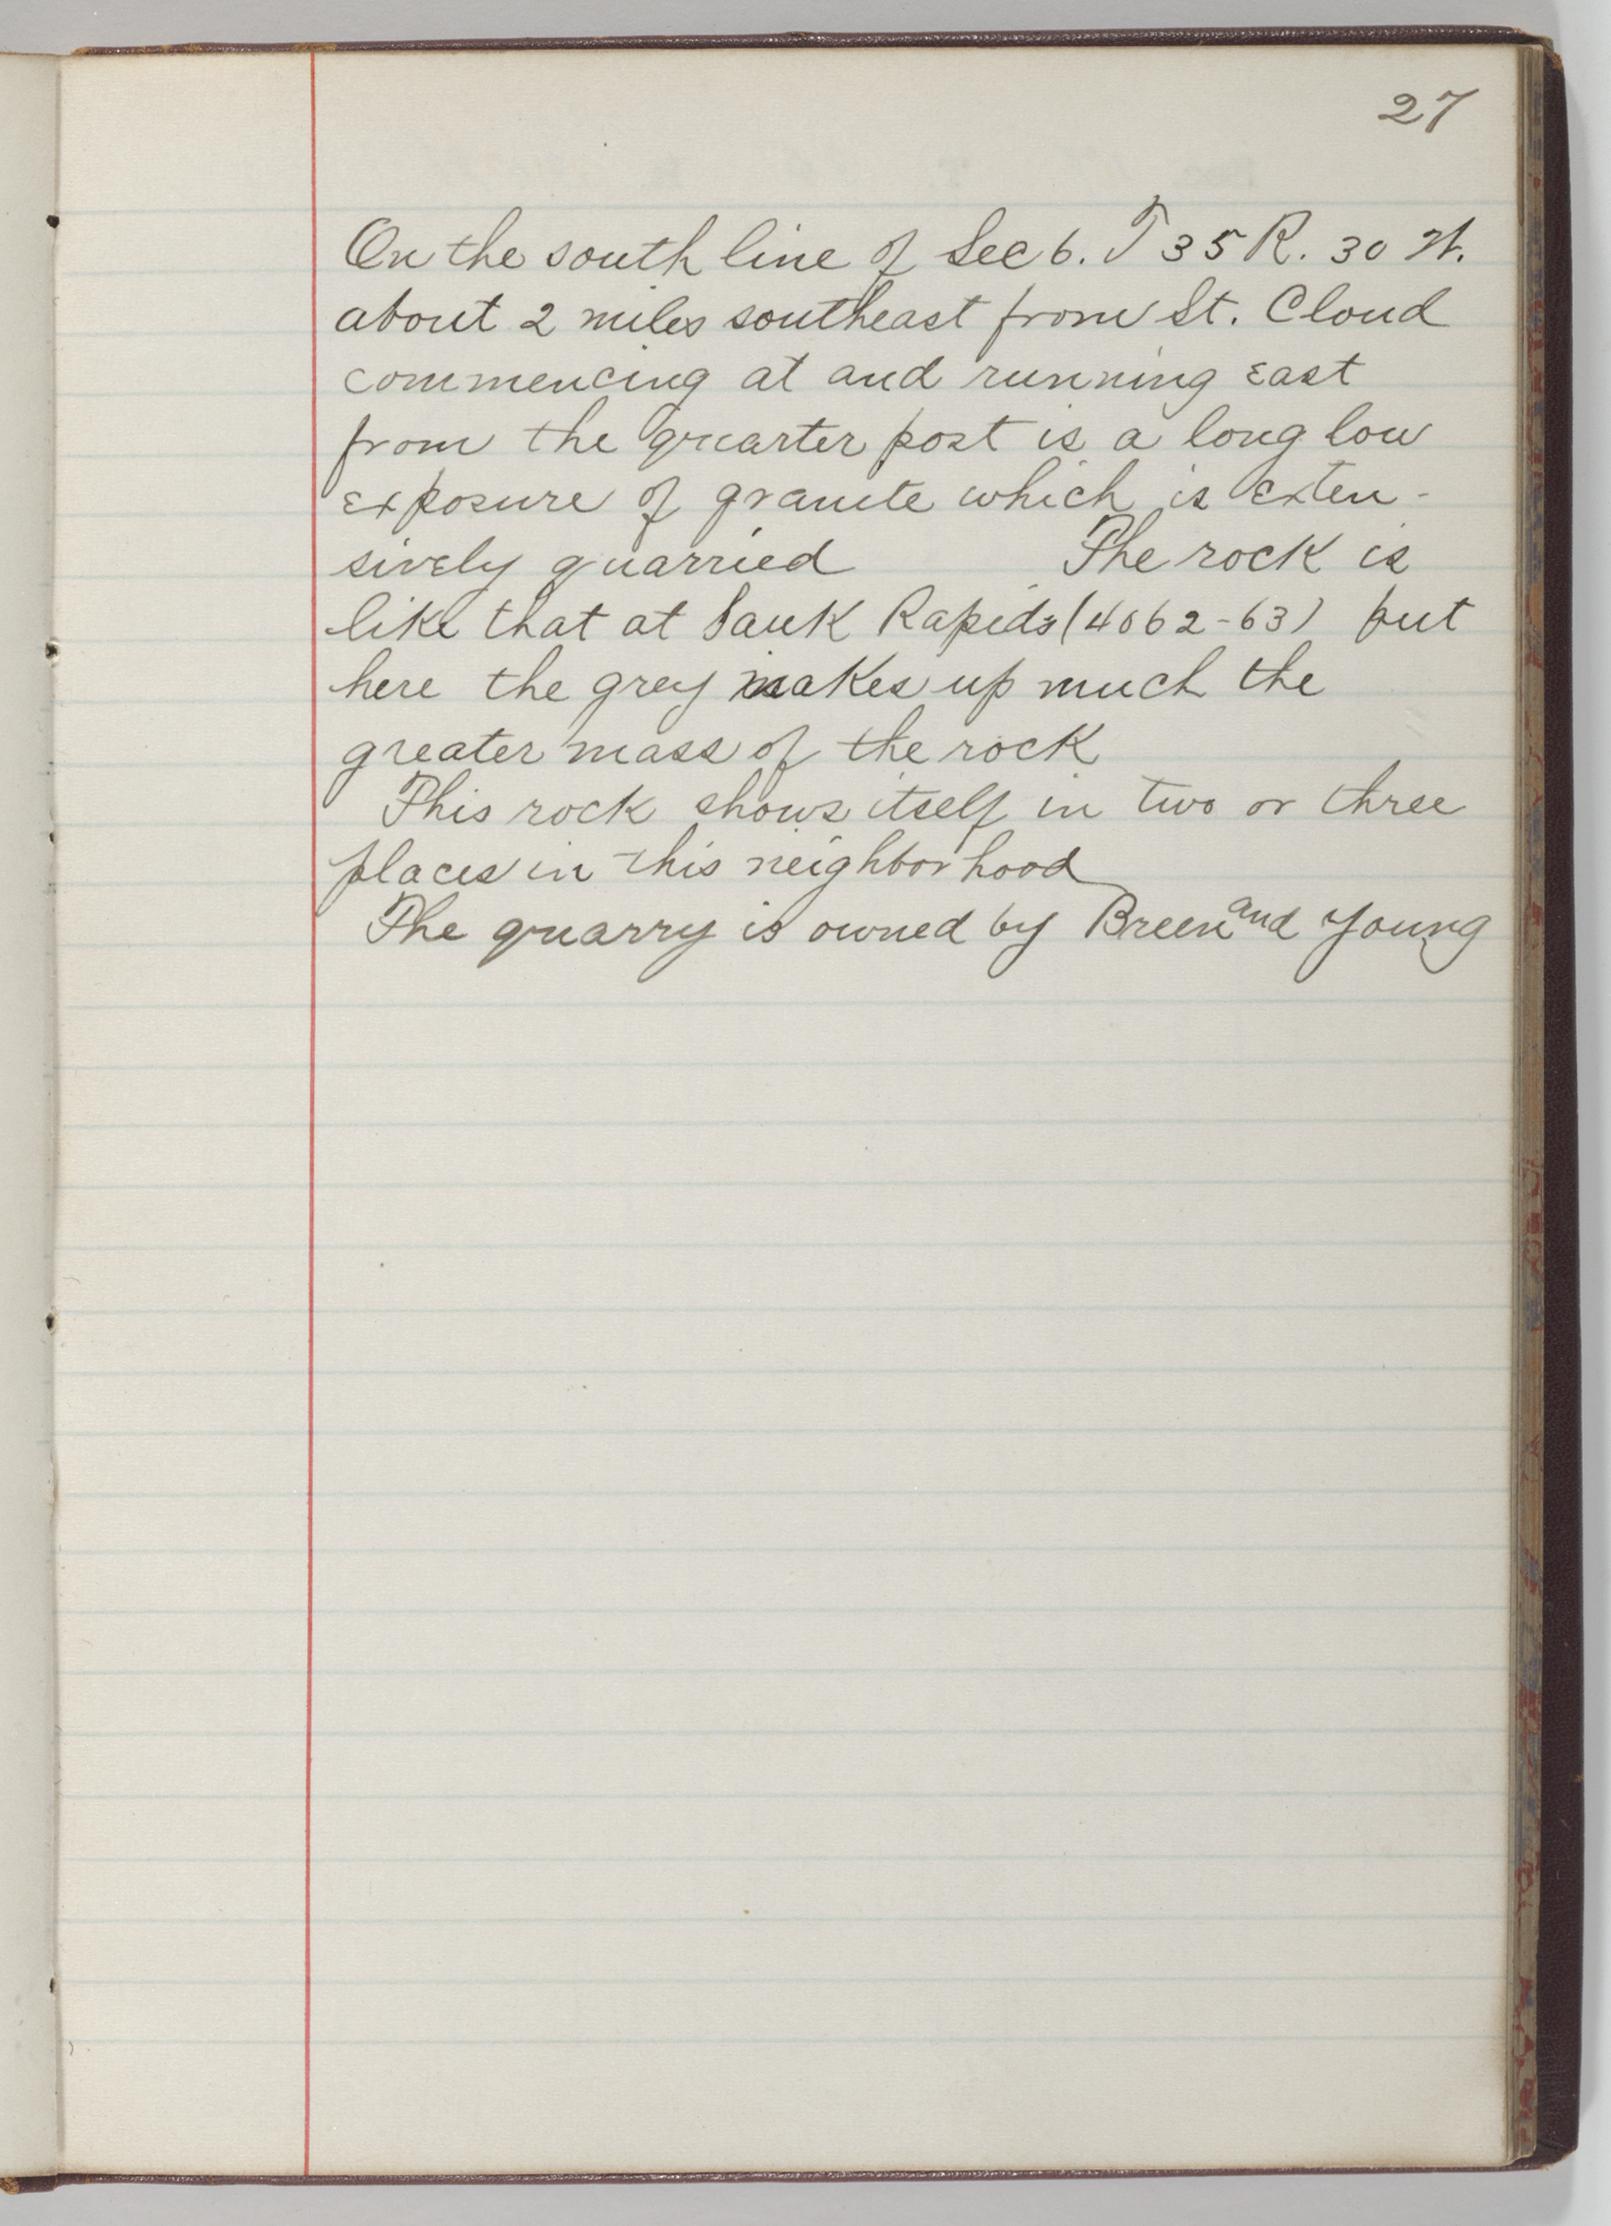 27
On the south line of Sec 6. T 35 R. 30 W.
about 2 miles southeast from St. Cloud
commencing at and running east
from the quarter post is a long low
exposure of granite which is exten-
sively quarried The rock is
like that at Sauk Rapids (4062-63) but
here the grey makes up much the
greater mass of the rock
This rock shows itself in two or three
places in this neighborhood
The quarry is owned by Breen and Young